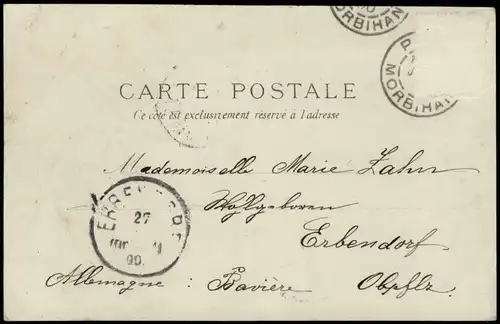 MORBIHAN
MORBIHAN
CARTE POSTALE
Ce côté est exclusivement réservé à l'adresse
Mademoiselle Marie Zahn
Wohlgeboren
Erbendorf
Allemagne : Bavière Obpflz.
ERBENDORF
27
90.